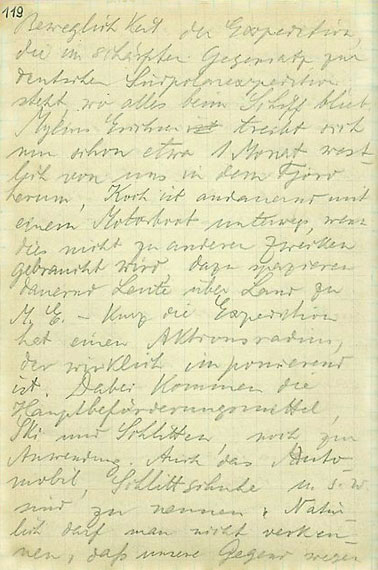 119
Beweglichkeit der Expedition,
die im schärfsten Gegensatz zur
deutschen Südpolarexpedition
steht, wo alles beim Schiff blieb.
Mylius Erichsen treibt sich
nun schon etwa 1 Monat west-
lich von uns in dem Fjord
herum, Koch ist andauernd mit
einem Motorboot unterwegs, wenn
dies nicht zu anderen Zwecken
gebraucht wird, dazu spazieren
dauernd Leute über Land zu
M. E. – Kurz die Expedition
hat einen Aktionsradius,
der wirklich imponierend
ist. Dabei kommen die
Hauptbeförderungsmittel,
Ski und Schlitten, noch zur
Anwendung. Auch das Auto-
mobil, Schlittschuhe u. s. w.
sind zu nennen. Natür-
lich darf man nicht verken-
nen, daß unsere Gegend wegen